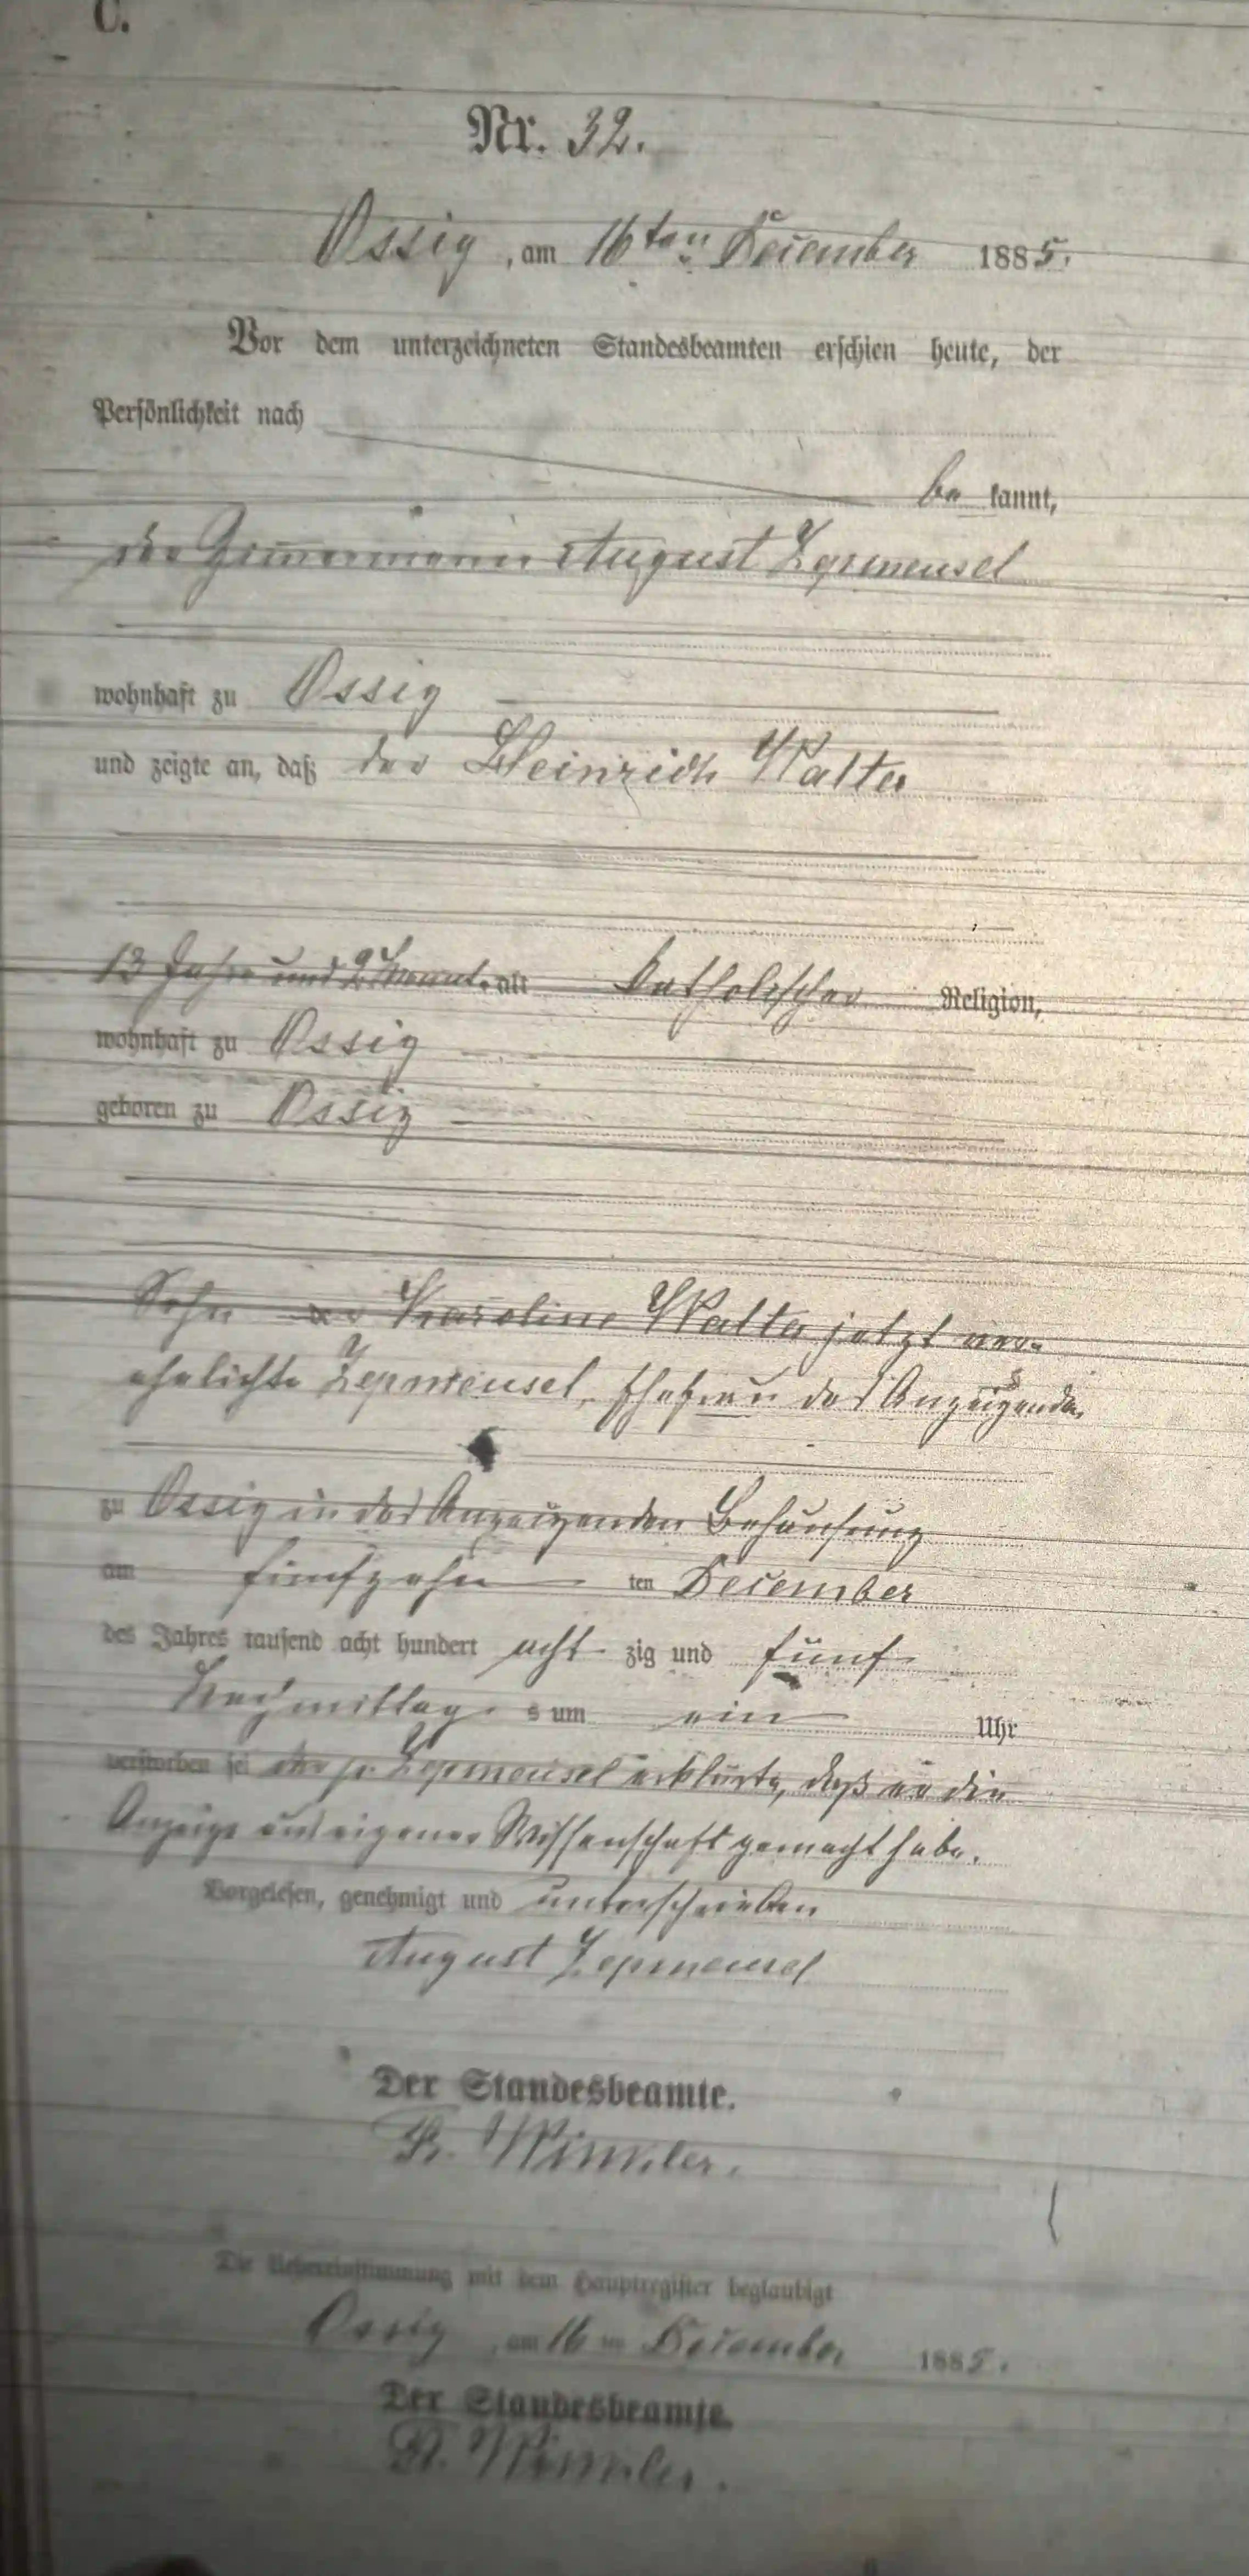 C.
Nr. 32.
Ossig, am 16ten December 1885.
Vor dem unterzeichneten Standesbeamten erschien heute, der
Persönlichkeit nach
be kannt,
der Zimmermann August Zepmeusel
wohnhaft zu Ossig
und zeigte an, daß der Heinrich Walter
13 Jahre und 2 Monat. alt katholischer Religion,
wohnhaft zu Ossig
geboren zu Ossig
Sohn der Karoline Walter jetzt ver-
ehelichte Zepmeusel, Ehefrau des Anzeigenden
zu Ossig in des Anzeigenden Behausung
am fünfzehn ten December
des Jahres tausend acht hundert acht zig und fünf
Nachmittag s um ein Uhr
verstorben sei der p. Zepmeusel erklärte, daß er die
Anzeige aus eigener Wissenschaft gemacht habe.
Vorgelesen, genehmigt und unterschrieben
August Zepmeusel
Der Standesbeamte.
Winkler.
Die Uebereinstimmung mit dem Hauptregister beglaubigt
Ossig, am 16 ten December 1885.
Der Standesbeamte.
Winkler.